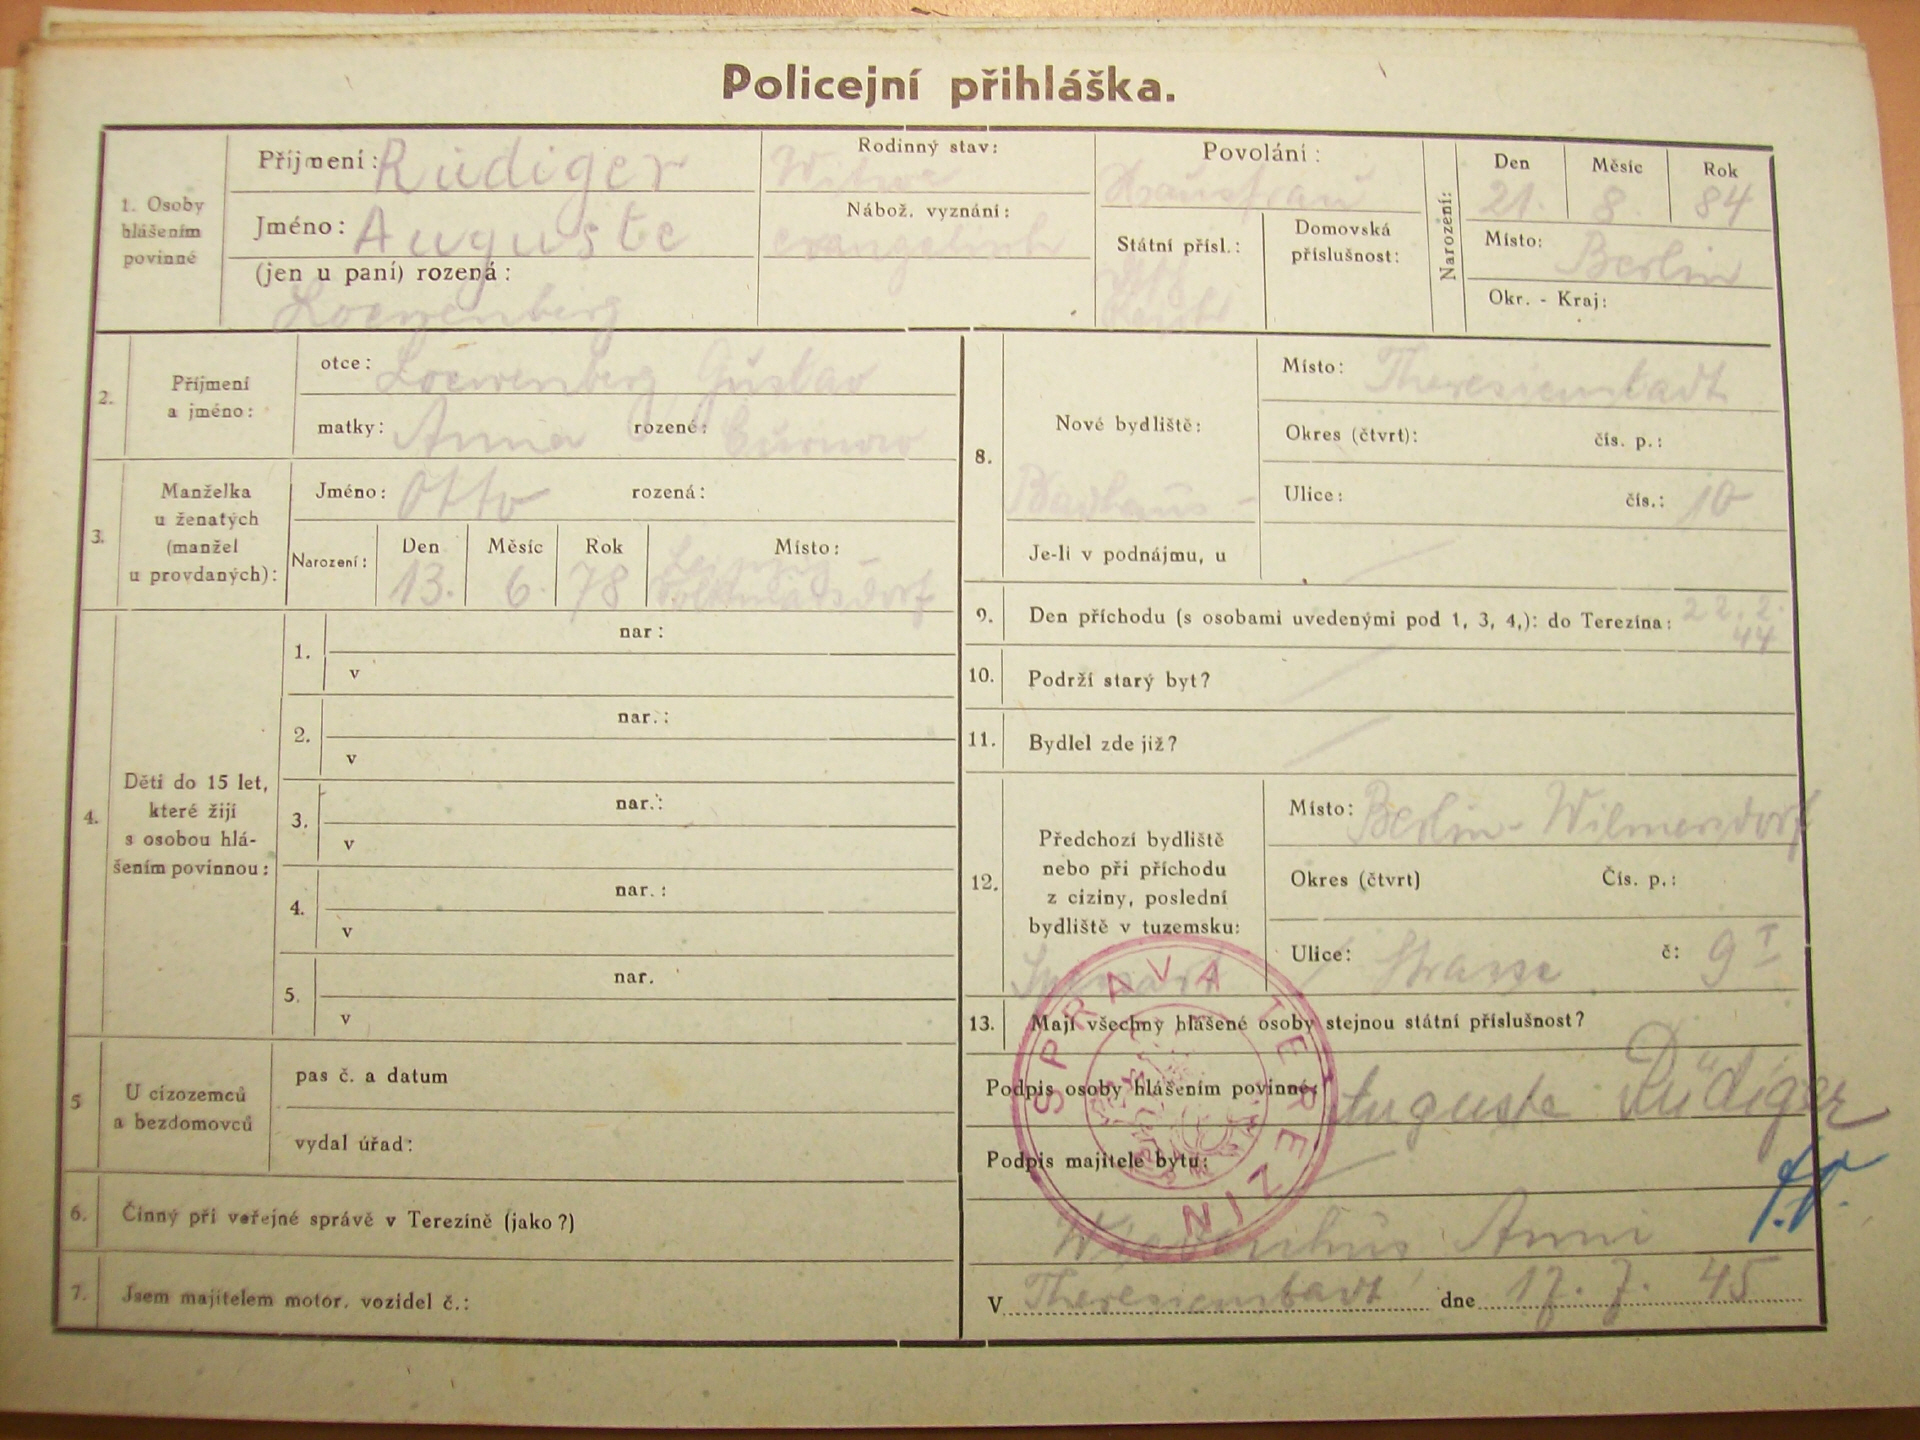 Policejní přihláška.
1. Osoby hlášením povinné
Příjmení: Rüdiger
Jméno: Auguste
(jen u paní) rozená:
Loewenberg
Rodinný stav:
Witwe
Nábož. vyznání:
evangelisch
Povolání:
Hausfrau
Státní přísl.:
Domovská příslušnost:
Narození:
Den Měsíc Rok
21. 8. 84
Místo: Berlin
Okr. - Kraj:
2. Příjmení a jméno:
otce: Loewenberg Gustav
matky: Anna rozené:
3. Manželka u ženatých (manžel u provdaných):
Jméno: Otto rozená:
Narození: Den Měsíc Rok Místo:
13. 6. 78
4. Děti do 15 let, které žijí s osobou hlášením povinnou:
1. nar:
v
2. nar.:
v
3. nar.:
v
4. nar.:
v
5. nar.
v
5 U cizozemců a bezdomovců
pas č. a datum
vydal úřad:
6. Činný při veřejné správě v Terezíně (jako?)
7. Jsem majitelem motor. vozidel č.:
8. Nové bydliště:
Místo: Theresienstadt
Okres (čtvrt): čís. p.:
Badhaus-
Ulice: čís.: 10
Je-li v podnájmu, u
9. Den příchodu (s osobami uvedenými pod 1, 3, 4,): do Terezína: 22. 2. 44
10. Podrží starý byt?
11. Bydlel zde již?
12. Předchozí bydliště nebo při příchodu z ciziny, poslední bydliště v tuzemsku:
Místo: Berlin-Wilmersdorf
Okres (čtvrt) Čís. p.:
Ulice: Strasse č: 9 I
13. Mají všechny hlášené osoby stejnou státní příslušnost?
Podpis osoby hlášením povinné: Auguste Rüdiger
Podpis majitele bytu:
Anni
V Theresienstadt dne 17. 7. 45
SPRÁVA TEREZIN